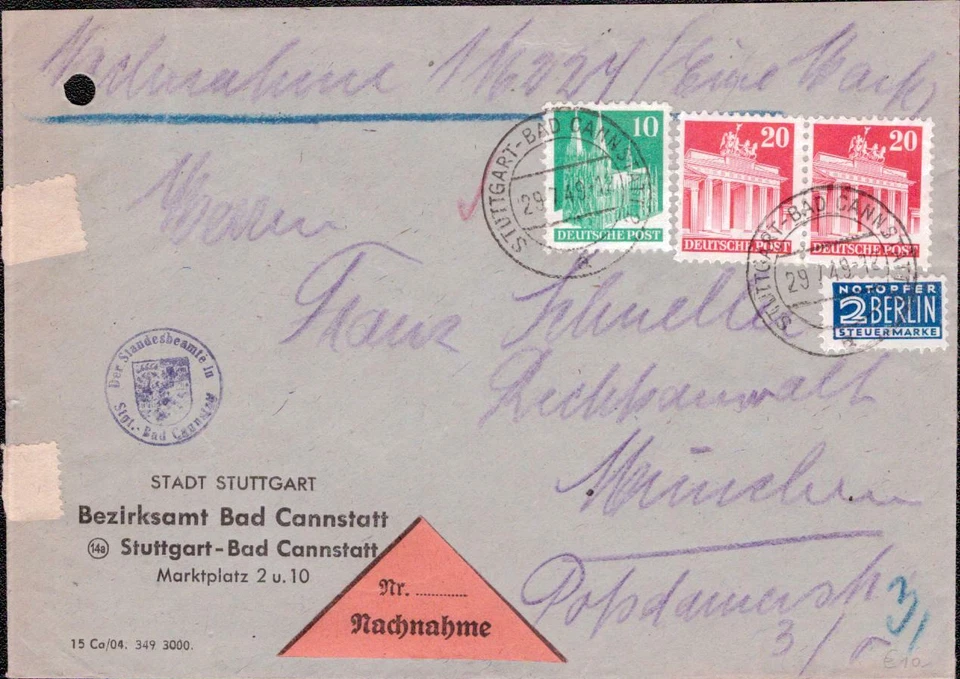 Nachnahme 1 M 224 / (Eine Mark)
10
DEUTSCHE POST
20
DEUTSCHE POST
20
DEUTSCHE POST
STUTTGART-BAD CANNSTATT
29.7.49.-12
STUTTGART-BAD CANNSTATT
29.7.49.-12
NOTOPFER
2 BERLIN
STEUERMARKE
Herrn
Franz Schneller
Rechtsanwalt
München
Potsdamerstr.
3/
3/
Der Standesbeamte in
Stgt.-Bad Cannstatt
STADT STUTTGART
Bezirksamt Bad Cannstatt
14a Stuttgart-Bad Cannstatt
Marktplatz 2 u. 10
Nr. ............
Nachnahme
15 Ca/04. 349 3000.